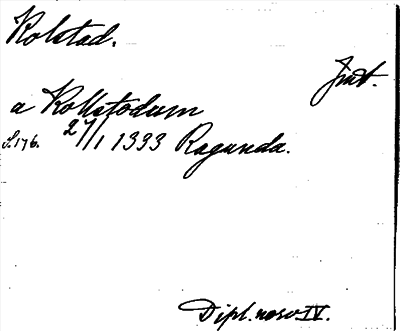 Kolstad.
Jmt.
a Kollstodum
S. 176. 27/1 1393 Ragunda.
Dipl. norv. IV.